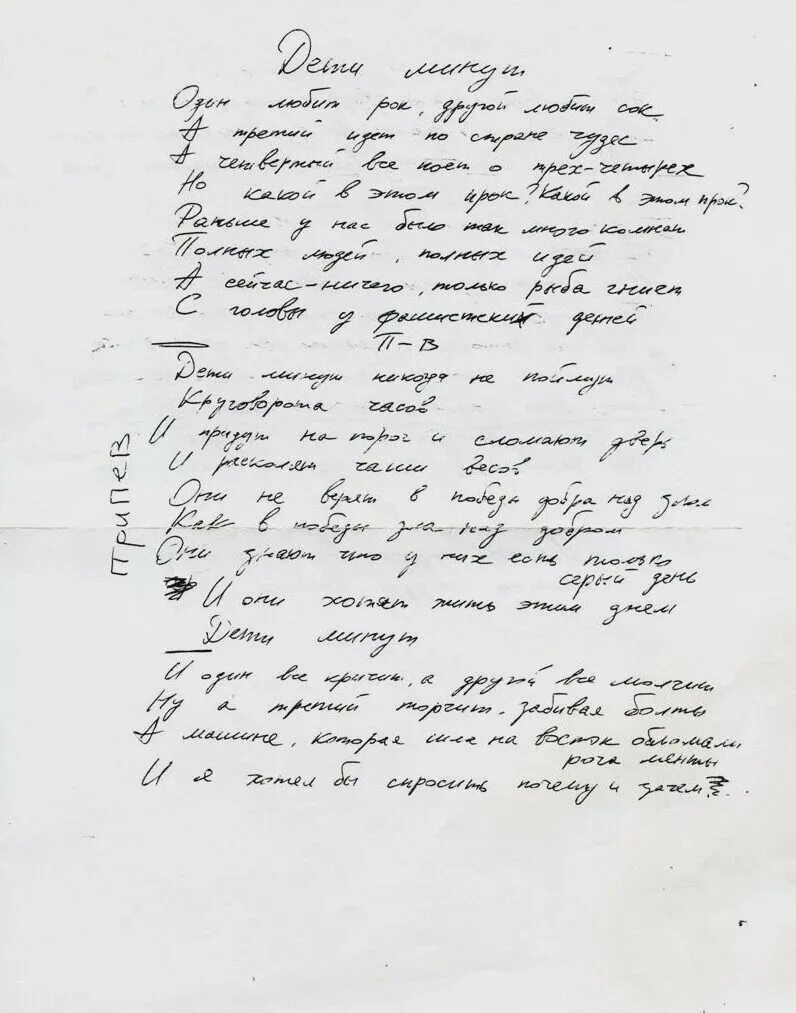 Дети минут
Один любит рок, другой любит сок
А третий идет по стране чудес
А четвертый все поет о трех-четырех
Но какой в этом прок? Какой в этом прок?
Раньше у нас было так много комнат
Полных людей, полных идей
А сейчас-ничего, только рыба гниет
С головы у фашистских детей
П-В
Дети минут никогда не поймут
Круговорота часов
И придут на порог и сломают дверь
И расколят чаши весов
Они не верят в победы добра над злом
Как в победы зла над добром
Они знают что у них есть только
серый день
И они хотят жить этим днем
Дети минут
ПРИПЕВ
И один все кричит, а другой все молчит
Ну а третий торчит, забивая болты
А машине, которая шла на восток обломали
рога менты
И я хотел бы спросить почему и зачем?